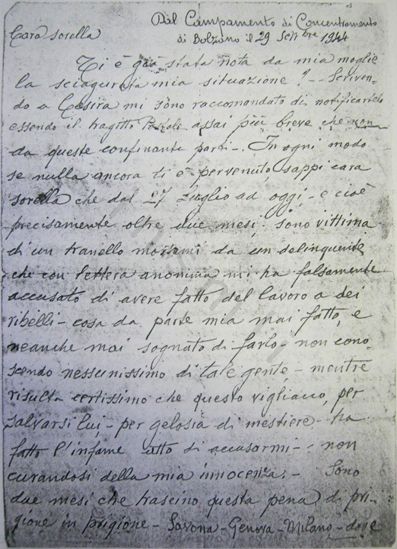 Dal Campamento di Concentramento
di Bolzano il 29 Settbre 1944
Cara sorella
Ti è già stata nota da mia moglie
la sciagurata mia situazione? - Scriven-
do a Cesira mi sono raccomandato di notificartelo
essendo il tragitto Postale assai più breve che non
da queste confinante parti - In ogni modo
se nulla ancora ti è pervenuto sappi cara
sorella che dal 27 Luglio ad oggi - e cioè
precisamente oltre due mesi sono vittima
di un tranello da un delinquente
che con lettera anonima mi ha falsamente
accusato di avere fatto del lavoro a dei
ribelli - cosa da parte mia mai fatto, e
neanche mai sognato di farlo - non cono
scendo nessunissimo di tale gente - mentre
risulta certissimo che questo vigliacco, per
salvarsi lui - per gelosia di mestiere - ha
fatto l'infame atto di accusarmi - non
curandosi della mia innocenza - Sono
due mesi che trascino questa pena di pri-
gione in prigione - Savona - Genova Milano - dove